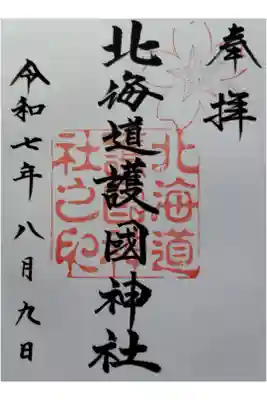 奉拝
北海道護國神社
北海道
護國神
社之印
令和七年八月九日